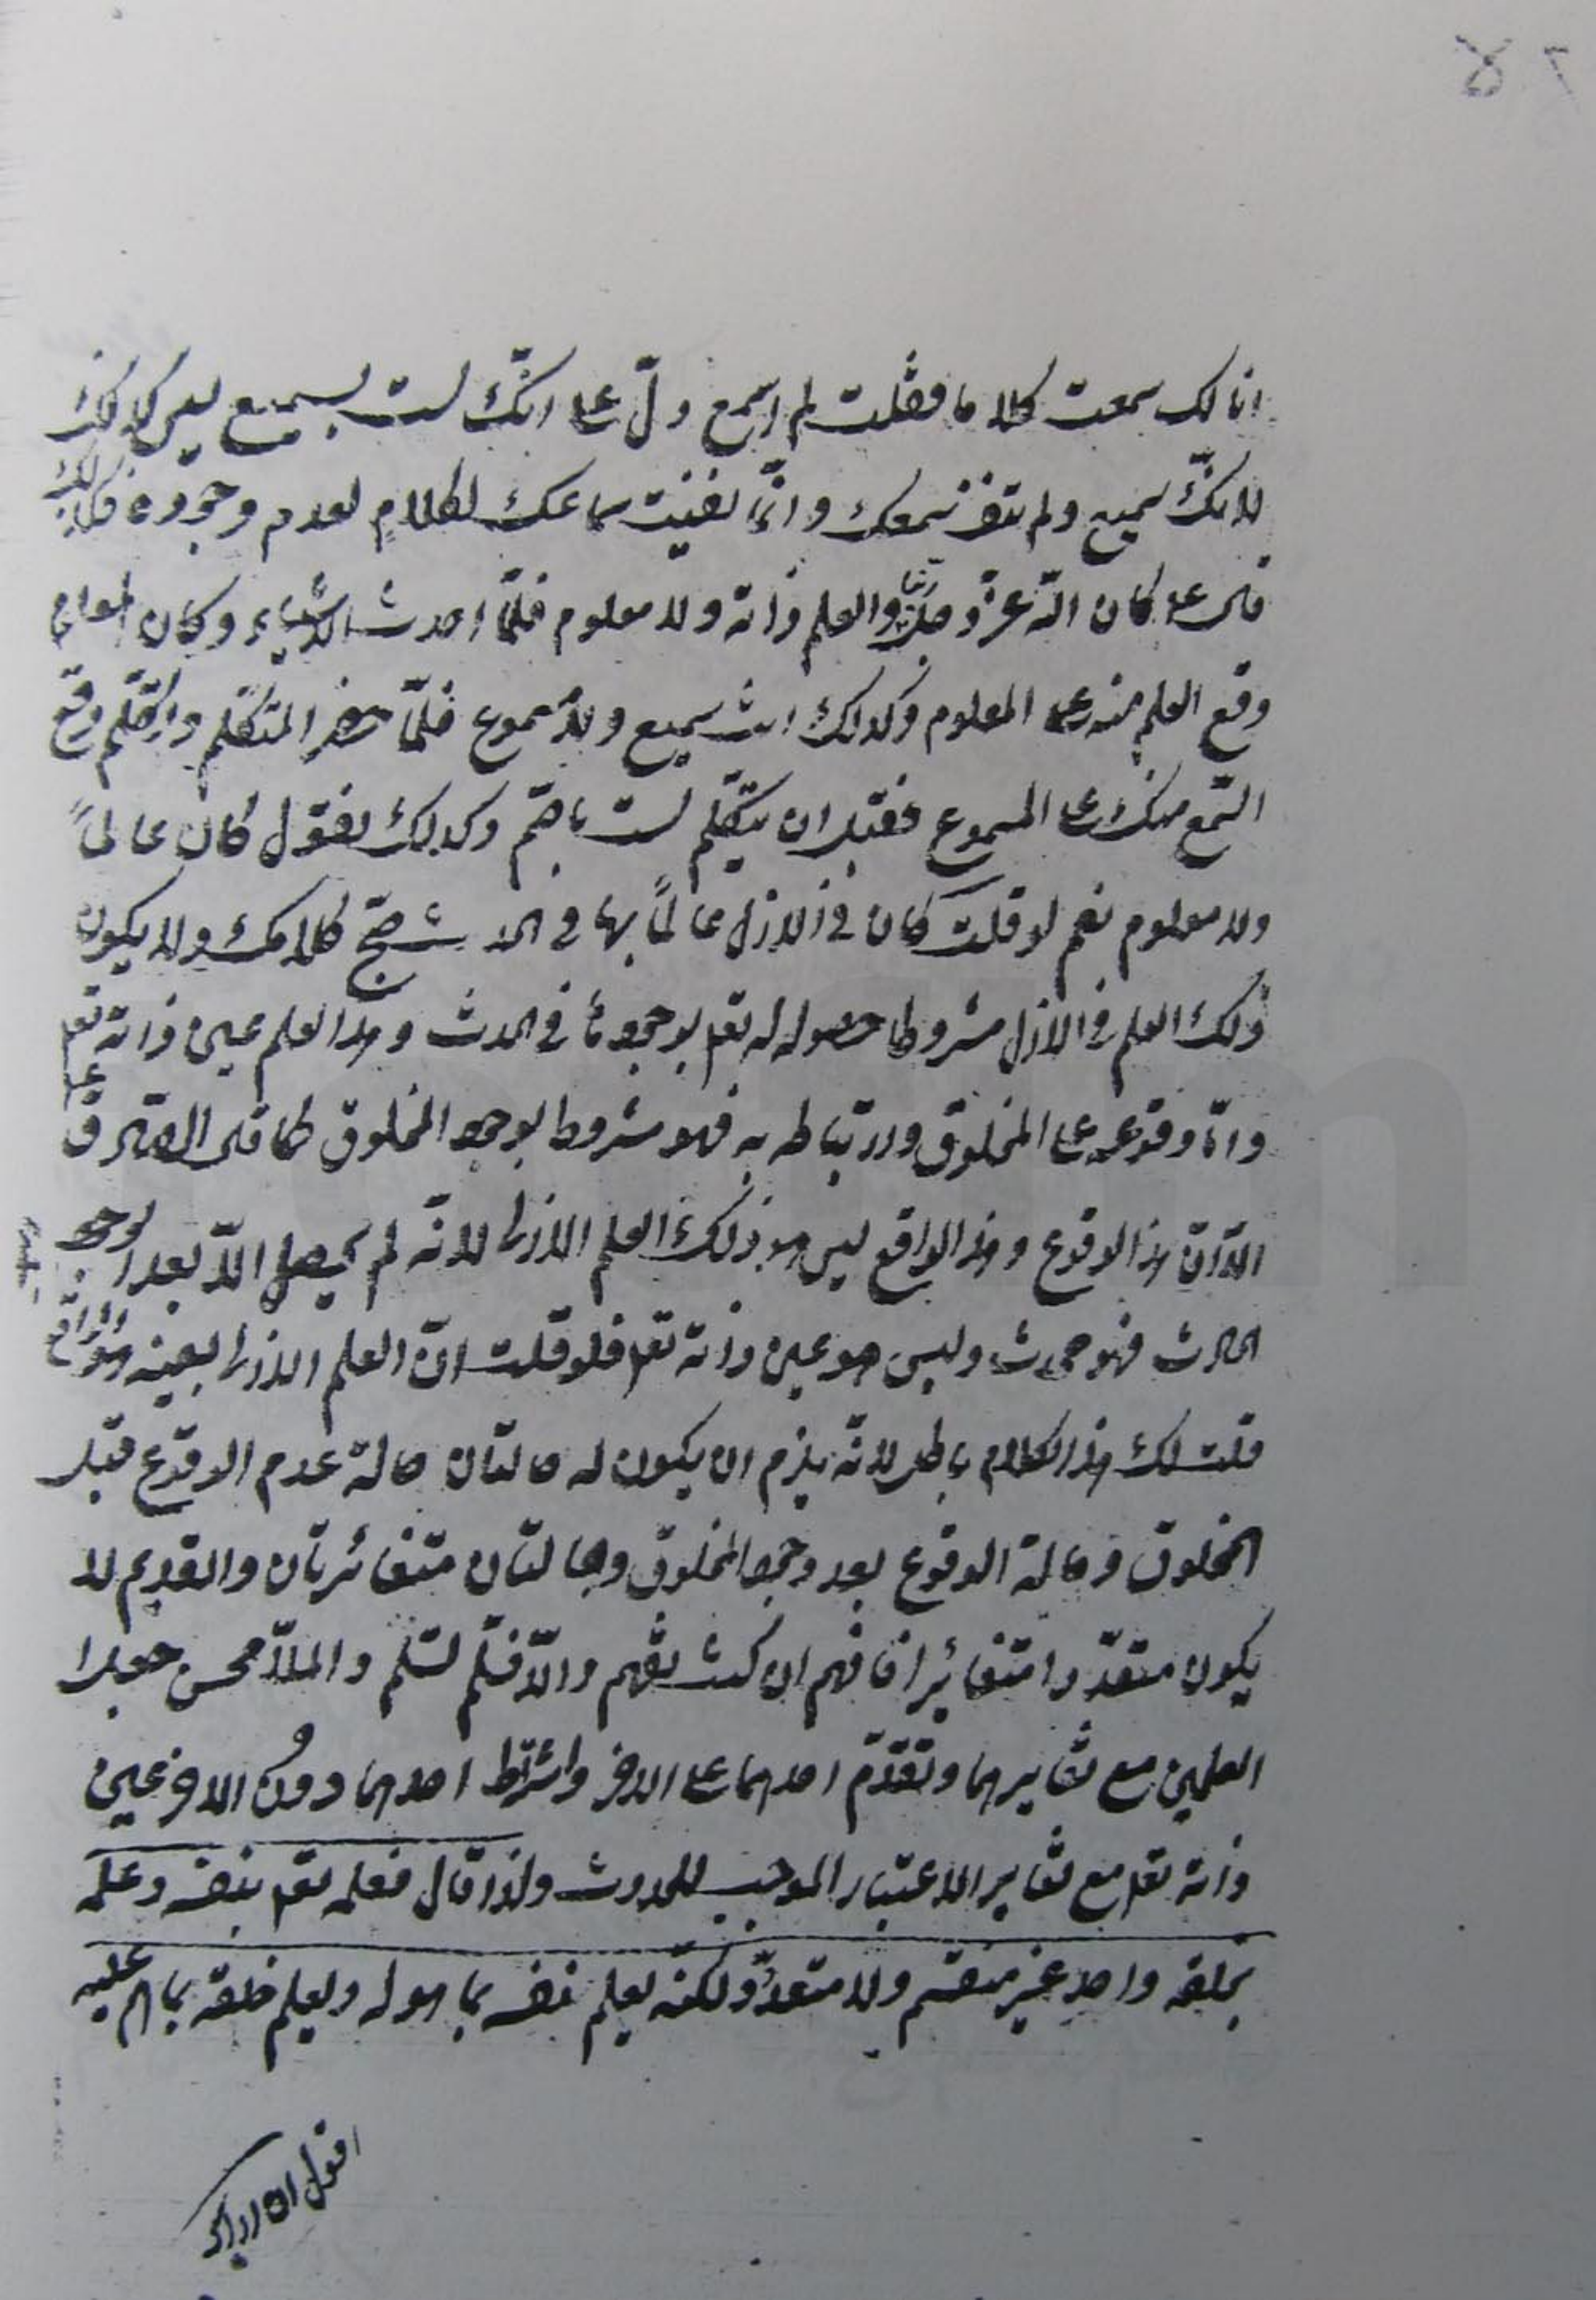 انا لك سمعت كلاما فقلت لم اسمع دلّ على انّك لست بسميع ليس كذلك
لانّك سميع ولم تنف سمعك وانّما نفيت سماعك لكلام لعدم وجوده فكذلك
قال ع كان الله عزّ وجلّ ربّنا والعلم ذاته ولا معلوم فلمّا احدث الاشياء وكان المعلوم
وقع العلم منه على المعلوم وكذلك انت سميع ولا مسموع فلمّا حضر المتكلّم وتكلّم وقع
السّمع منك على المسموع فقبل ان يتكلّم لست باصمّ وكذلك نقول كان عالماً
ولا معلوم نعم لو قلت كان في الازل عالماً بها في الحدث صحّ كلامك ولا يكون
ذلك العلم في الازل مشروطا حصوله له تعا بوجودها في الحدث وهذا العلم عين ذاته تعا
وامّا وقوعه على المخلوق وارتباطه به فهو مشروط بوجود المخلوق كما قال الصادق ع
الّا انّ هذا الوقوع وهذا الواقع ليس هو ذلك العلم الازلى لانّه لم يحصل الّا بعد وجود
الحادث فهو محدث وليس هو عين ذاته تعا فلو قلت انّ العلم الازلى بعينه هو الواقع
قلت لك هذا الكلام باطل لانّه يلزم ان يكون له حالتان حالة عدم الوقوع قبل
المخلوق وحالة الوقوع بعد وجود المخلوق وحالتان متغائرتان والقديم لا
يكون متعدّدا متغائرا فافهم ان كنت تفهم والّا فسلّم تسلم والملّا محسن جعل
العلمين مع تغايرهما وتقدّم احدهما على الاخر واشتراط احدهما دون الاخر عين
ذاته تعا مع تغاير الاعتبار الموجب للحدوث ولذا قال فعلمه تعا بنفسه وعلمه
بخلقه واحد غير منقسم ولا متعدّد ولكنّه يعلم نفسه بما هو له ويعلم خلقه بما هم عليه
اقول ان اراد